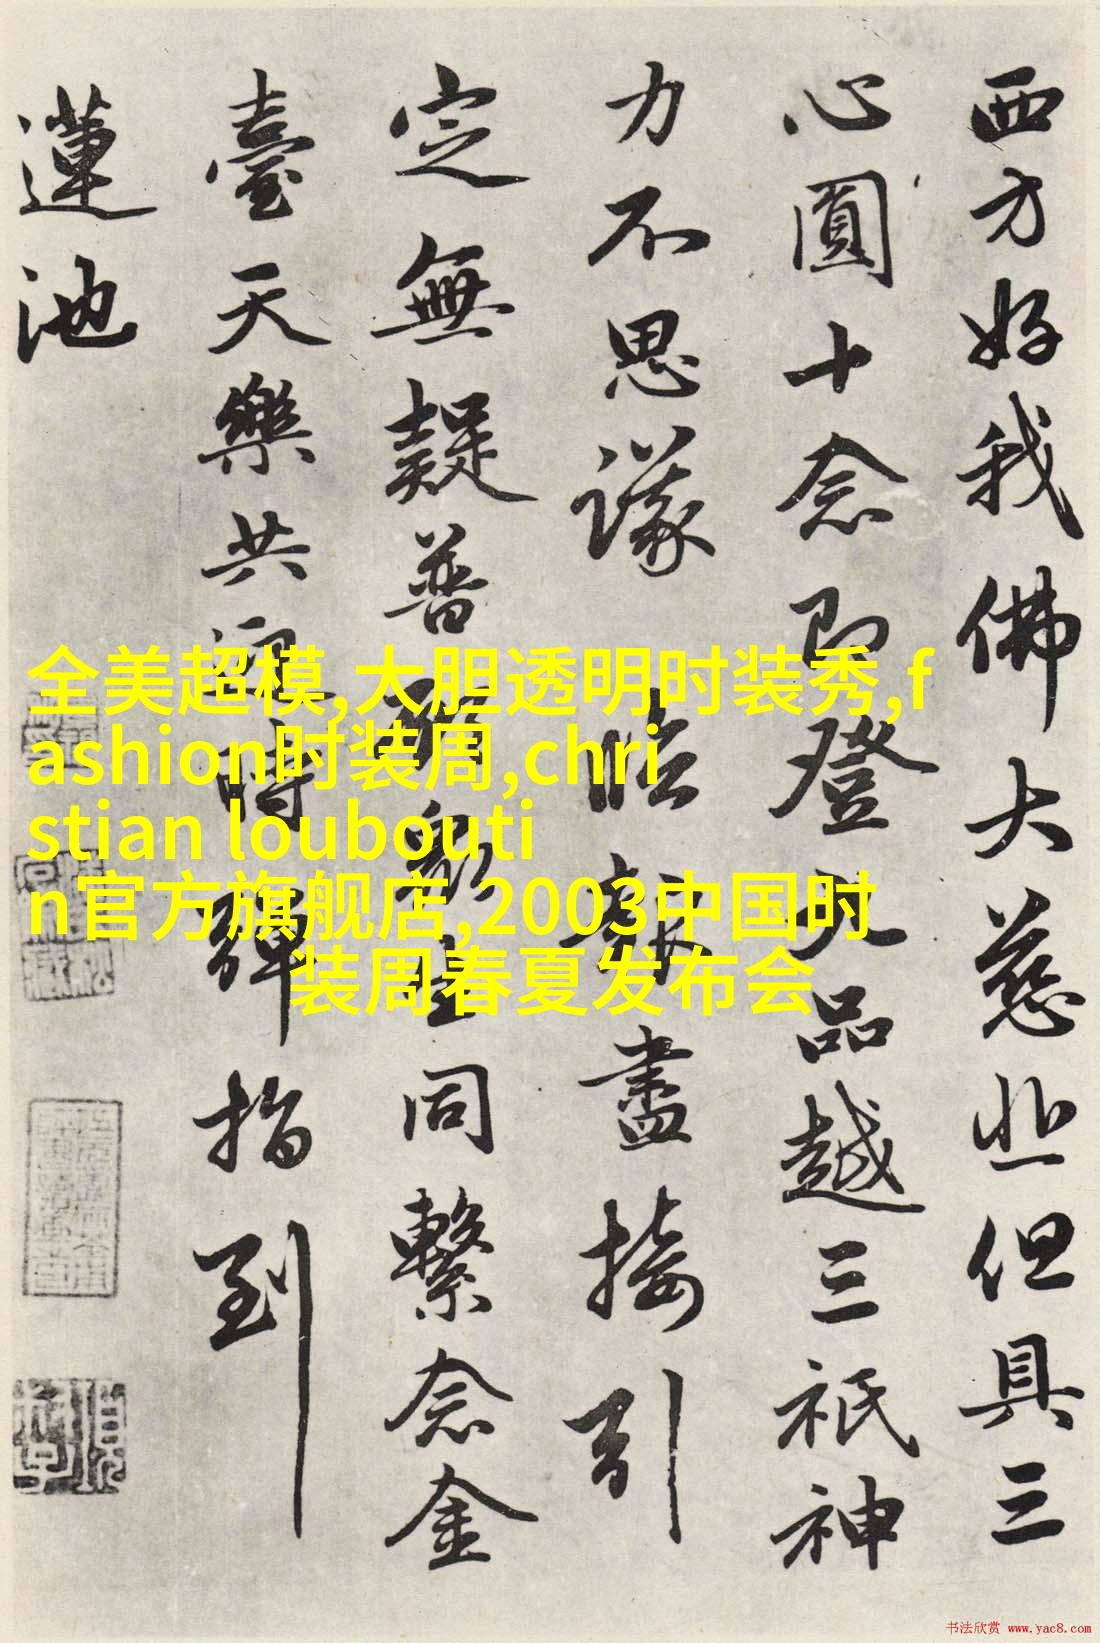 西方好我佛大慈悲但具三
心圓十念即登九品越三祇神
力不思議臨報盡接引
定無疑普衆生同繫念金
臺天樂共迎時彈指到
蓮池
全美超模,大胆透明时装秀,f
ashion时装周,chri
stian loubouti
n官方旗舰店,2003中国时
装周春夏发布会
书法欣赏 www.yac8.com